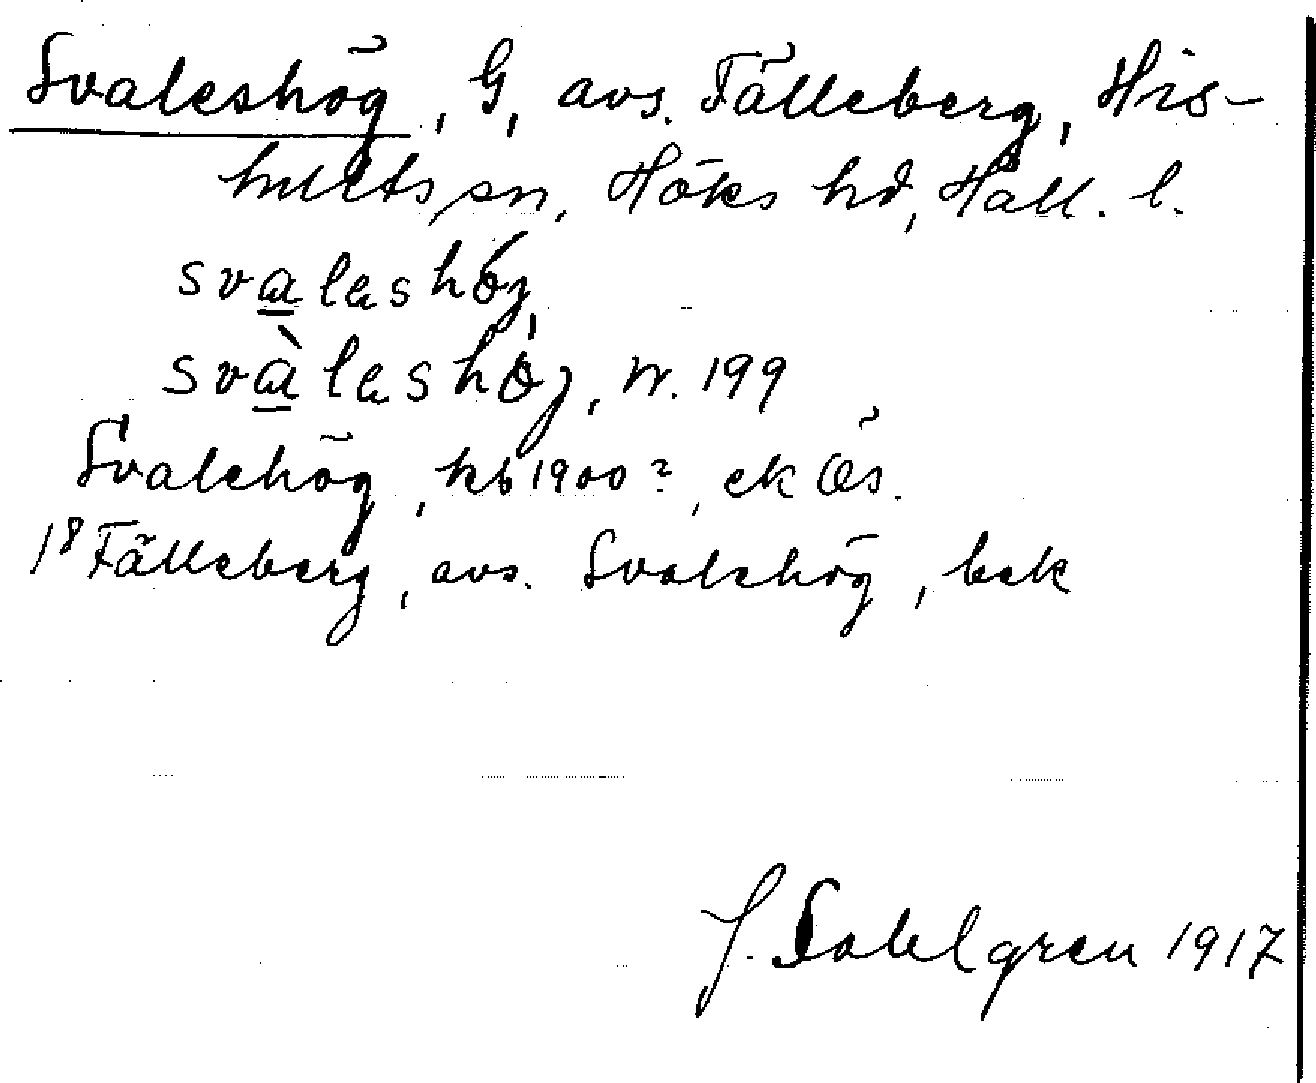 Svaleshög, G, avs. Fälleberg, His-
hults sn, Höks hd, Hall. l.
svaleshöj,
svàleshöj, n. 199
Svalehög, kb 1900?, ek Ös.
18 Fälleberg, avs. Svalehög, bek
J. Sahlgren 1917